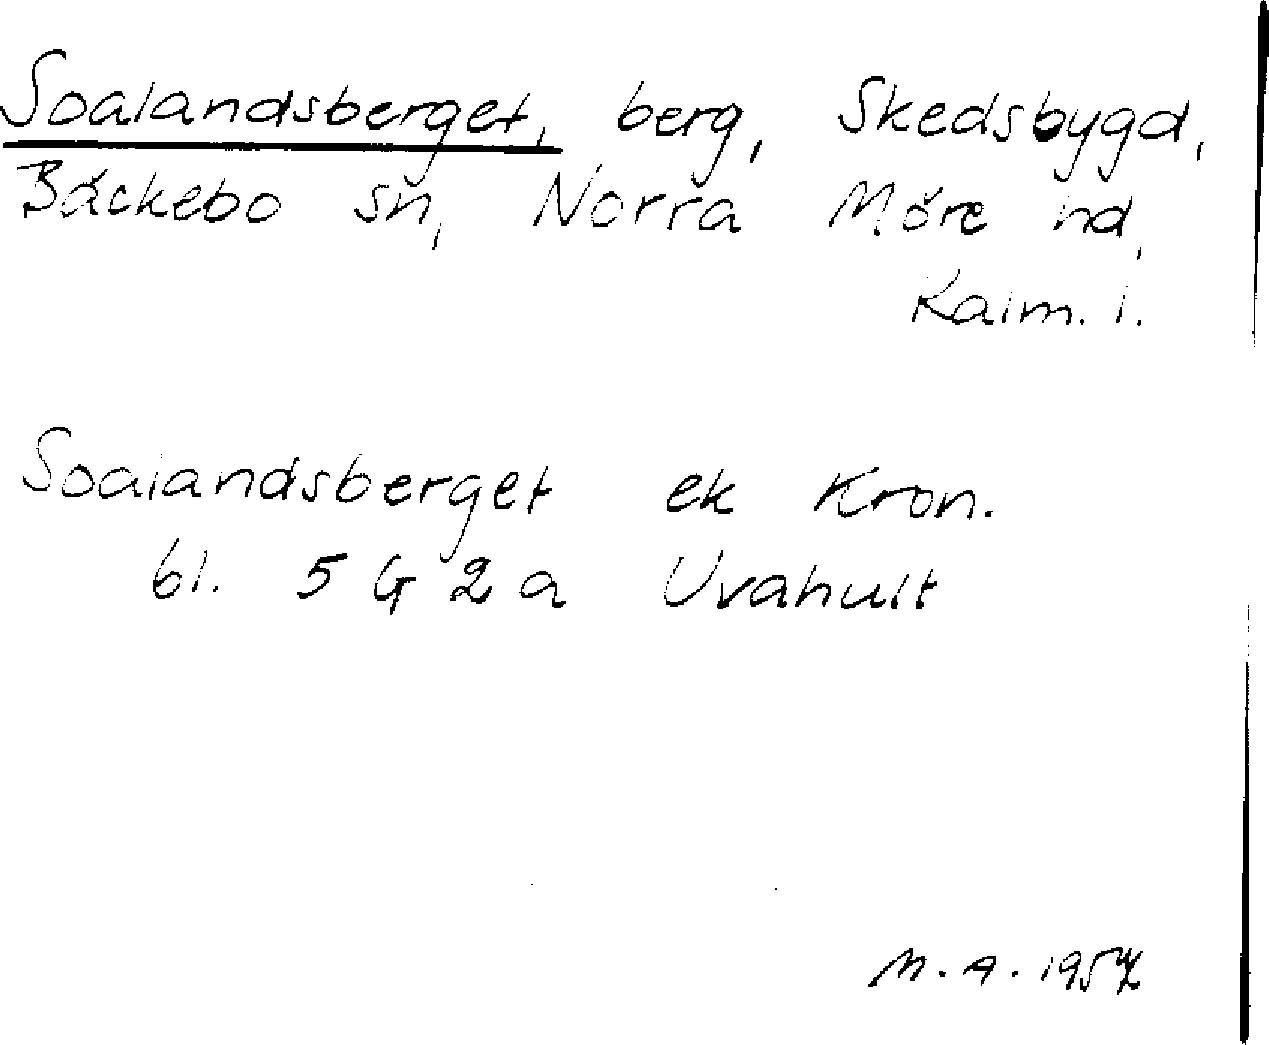 Soalandsberget, berg, Skedsbygd,
Bäckebo sn, Norra Möre hd,
Kalm. l.
Soalandsberget ek Kron.
bl. 5 G 2 a Uvahult
M.A.